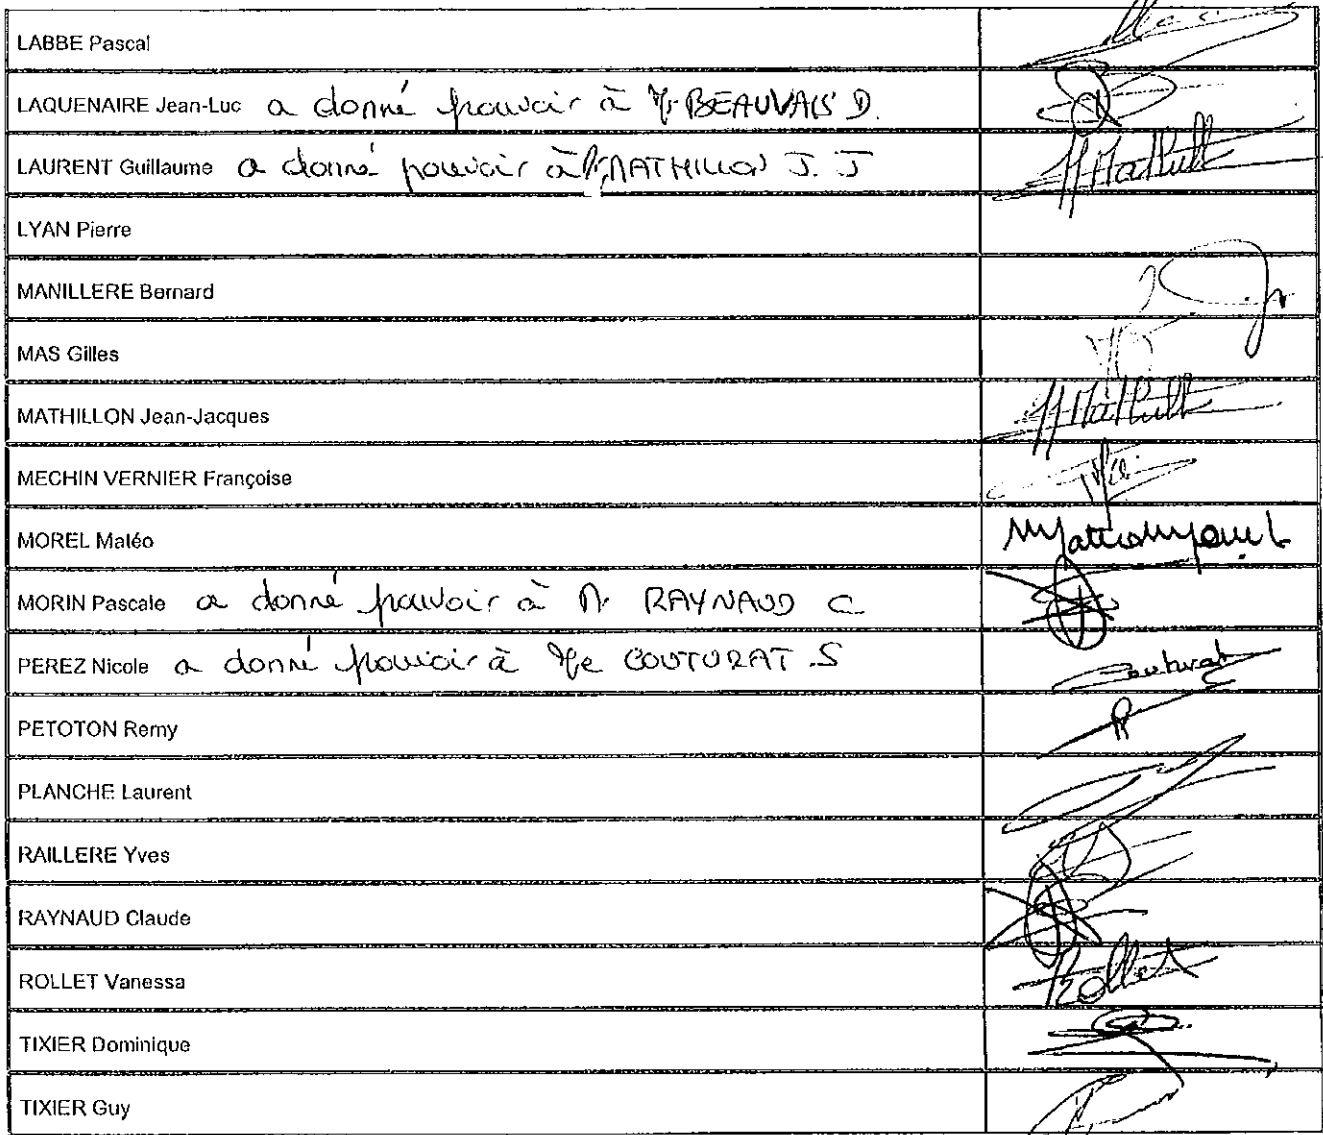 LABBE Pascal
LAQUENAIRE Jean-Luc a donné pouvoir à Mr BEAUVAIS D.
LAURENT Guillaume a donné pouvoir à Mr MATHILLON J. J
LYAN Pierre
MANILLERE Bernard
MAS Gilles
MATHILLON Jean-Jacques
MECHIN VERNIER Françoise
MOREL Maléo
MORIN Pascale a donné pouvoir à Mr RAYNAUD C
PEREZ Nicole a donné pouvoir à Me COUTURAT .S
Couturat
PETOTON Remy
PLANCHE Laurent
RAILLERE Yves
RAYNAUD Claude
ROLLET Vanessa
Rollet
TIXIER Dominique
TIXIER Guy